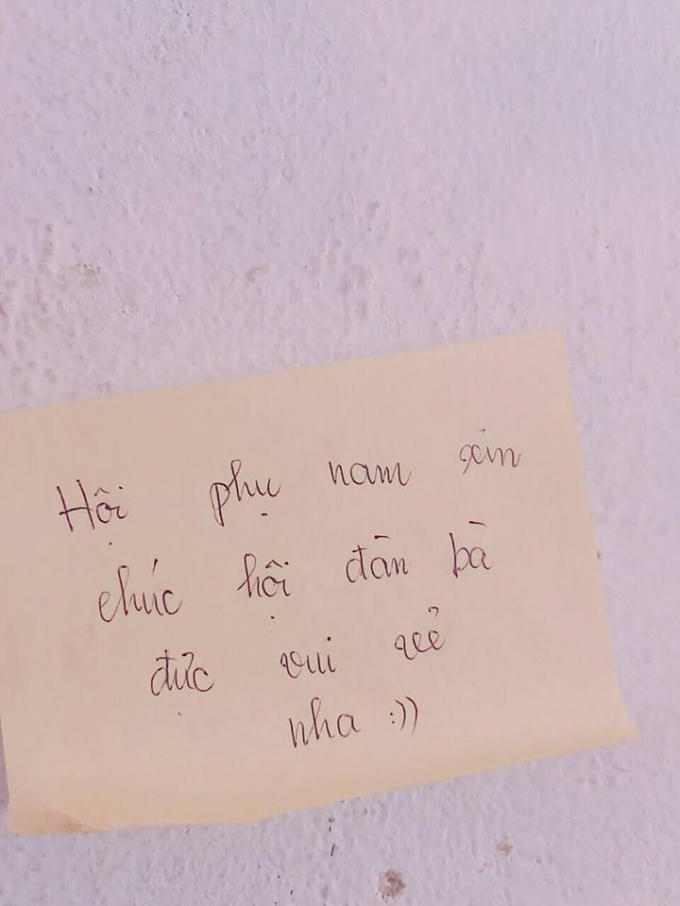 Hội phụ nam xin
chúc hội đàn bà
đực vui vẻ
nha :))